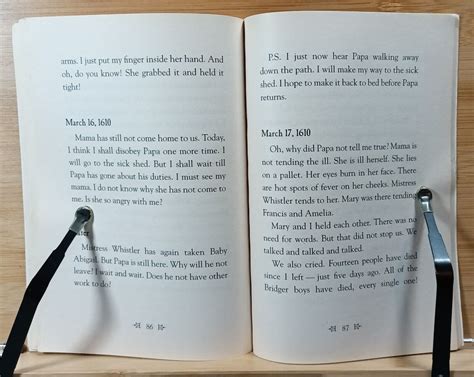 arms. I just put my finger inside her hand. And
oh, do you know! She grabbed it and held it
tight!
March 16, 1610
Mama has still not come home to us. Today,
I think I shall disobey Papa one more time. I
will go to the sick shed. But I shall wait till
Papa has gone about his duties. I must see my
mama. I do not know why she has not come to
me. Is she so angry with me?
Later
Mistress Whistler has again taken Baby
Abigail. But Papa is still here. Why will he not
leave? I wait and wait. Does he not have other
work to do?
86
P.S. I just now hear Papa walking away
down the path. I will make my way to the sick
shed. I hope to make it back to bed before Papa
returns.
March 17, 1610
Oh, why did Papa not tell me true? Mama is
not tending the ill. She is ill herself. She lies
on a pallet. Her eyes burn in her face. There
are hot spots of fever on her cheeks. Mistress
Whistler tends to her. Mary was there tending
Francis and Amelia.
Mary and I held each other. There was no
need for words. But that did not stop us. We
talked and talked and talked.
We also cried. Fourteen people have died
since I left — just five days ago. All of the
Bridger boys have died, every single one!
87